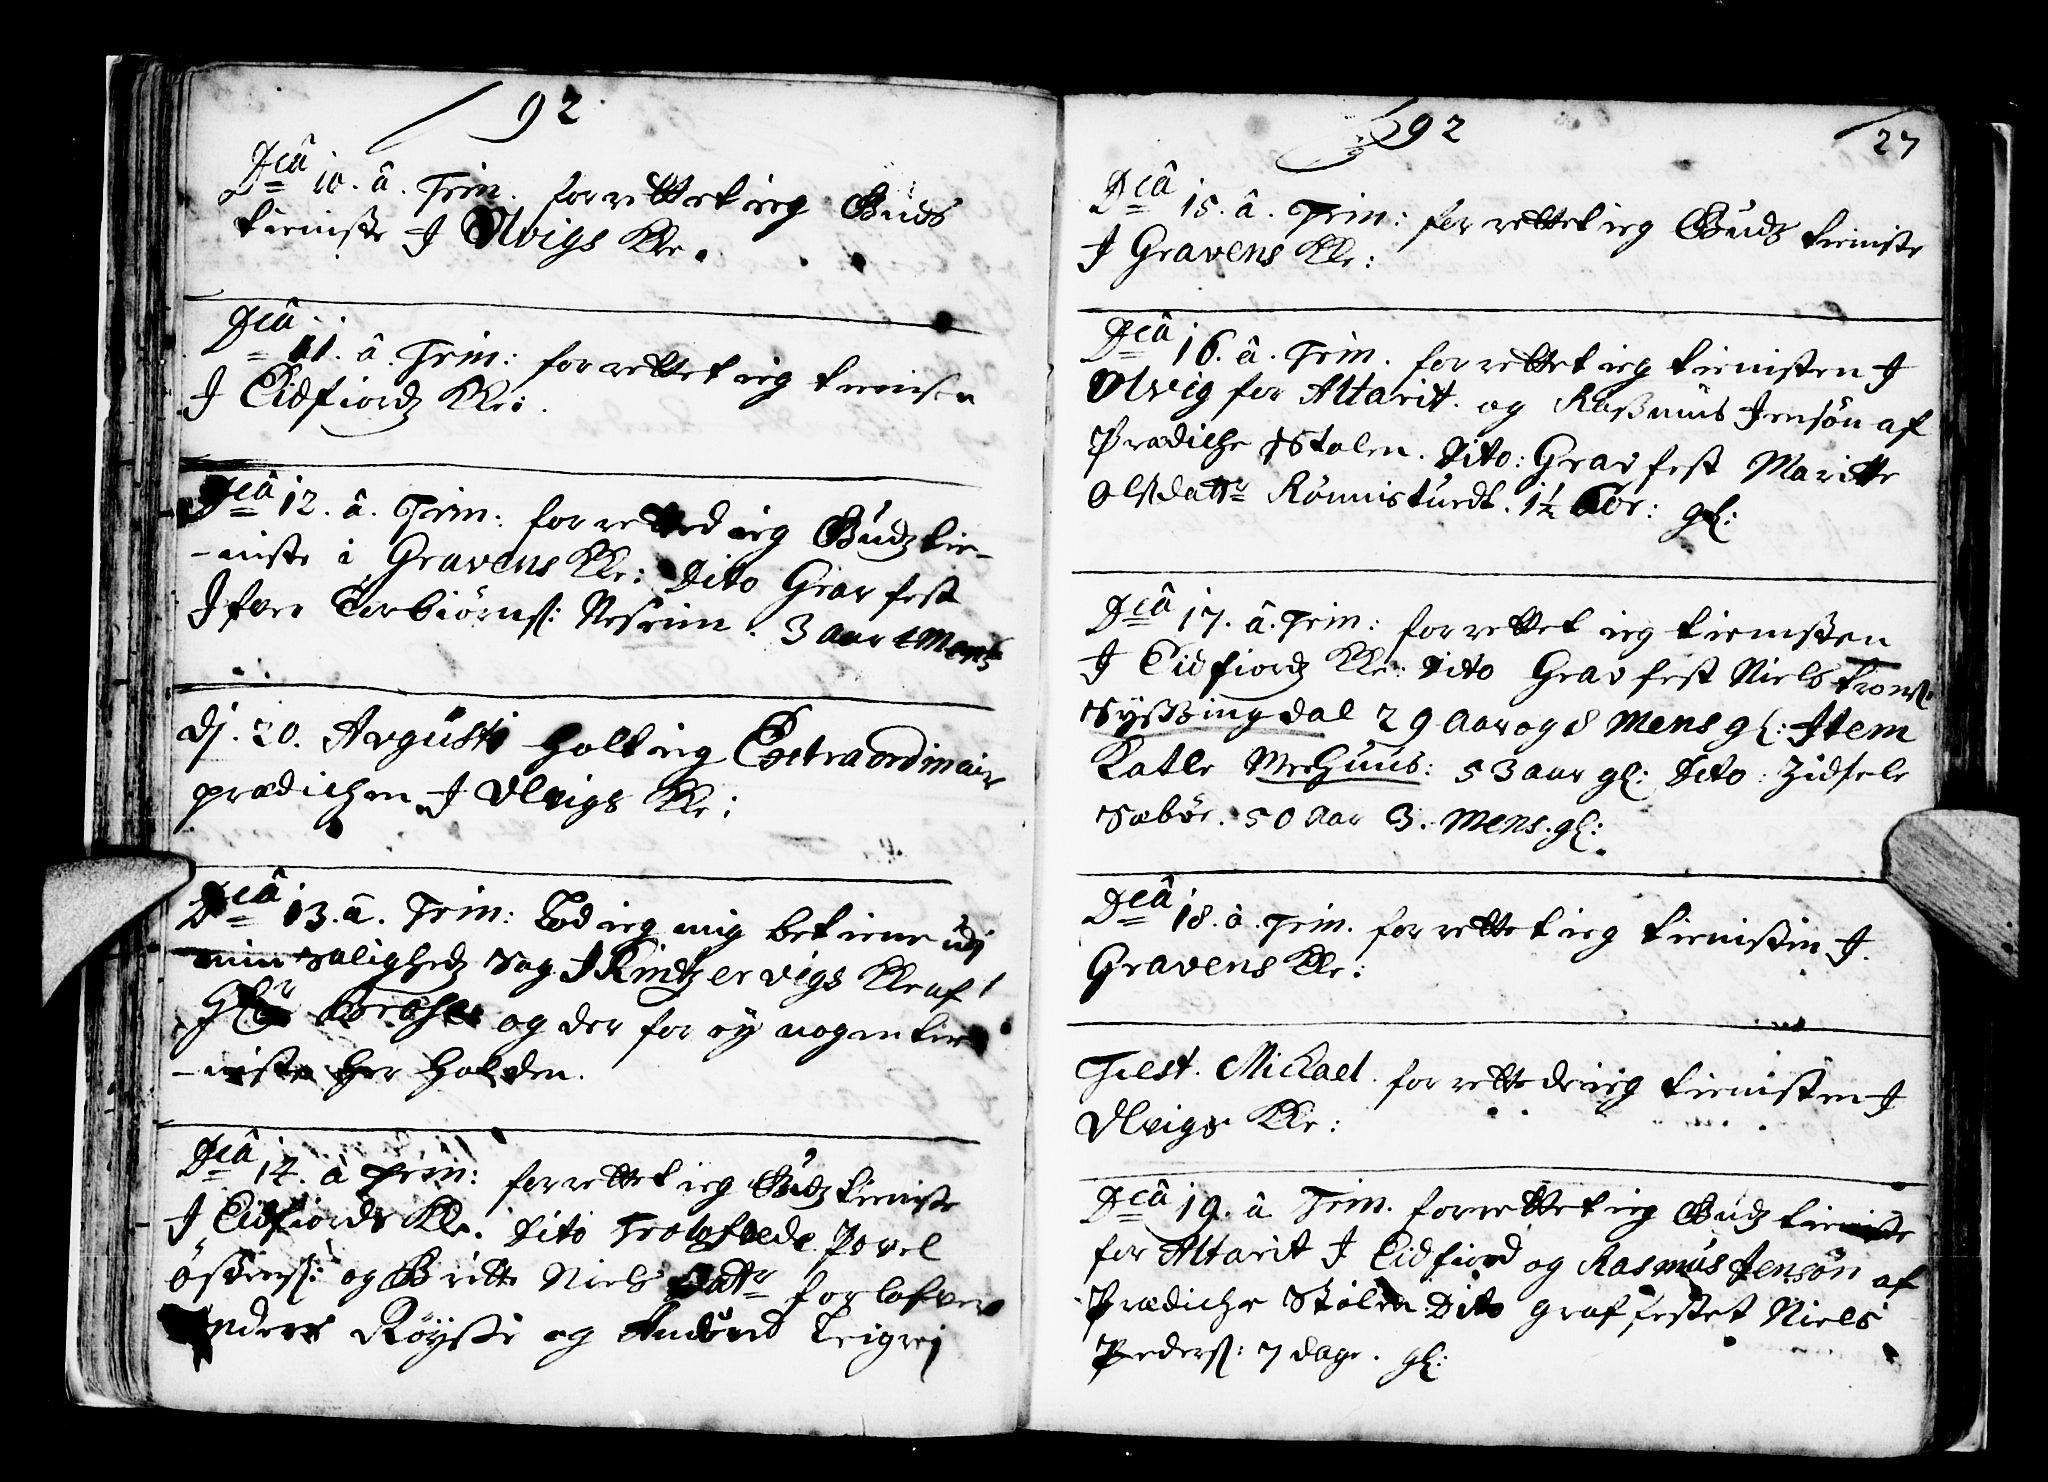 92
Dca 10. â. Trin. forrettet ieg Guds
tieniste J Ulvigs Kle.
Dca 11. â. Trin: forrettet ieg tienisten
J Eidfiordz Kle:
Dca 12. â. Trin: forretted ieg Gudz tie-
-niste i Gravens Kle: Dito Grav fest
Ifver Torbiörns: Neseim. 3 aar
Dj. 20. Avgusti holt ieg Extraordinair
prædichen J Ulvigs Kle:
Dca 13. â. Trin: Lod ieg mig betiene udj
min Salighedz Sag J Kintzervigs Kle af
og der for ey nogen tie-
-niste her holden.
Dca 14. â Trin: forrettet ieg Gudz tieniste
J Eidfiords Kle. Dito Trolofvede Povel
östens: og Britte Niels Dattr forlofver
Anders Röysse og Amund Leigrej
92 27
Dca 15. â. Trin: forrettet ieg Gudz tieniste
J Gravens Kle:
Dca 16. â. Trin. forrettet ieg tienisten J
Olvig for Altarit og Rasmus Jensön af
Prædiche Stolen. Dito: Grav fest Maritte
Olsdattr 1½ gl:
Dca 17. â. Trin: forrettet ieg tienisten
J Eidfiordz Kle: Dito Grav fest Niels
Syssingdal 29 Aar og 8 Mens gl: Item
Katle Mehuus: 53 aar gl: Dito: Zidsele
Sæbör. 50 Aar 3. Mens. gl:
Dca 18. â. Trin. forrettet ieg tienisten J.
Gravens Kle:
Fest. Michael. forrettede ieg tienisten J
Ulvigs Kle:
Dca 19. â Trin. forrettet ieg Gudz tieniste
for Altarit J Eidfiord og Rasmus Jensön af
Prædiche Stolen Dito graf festet Niels
Peders: 7 dage. gl: